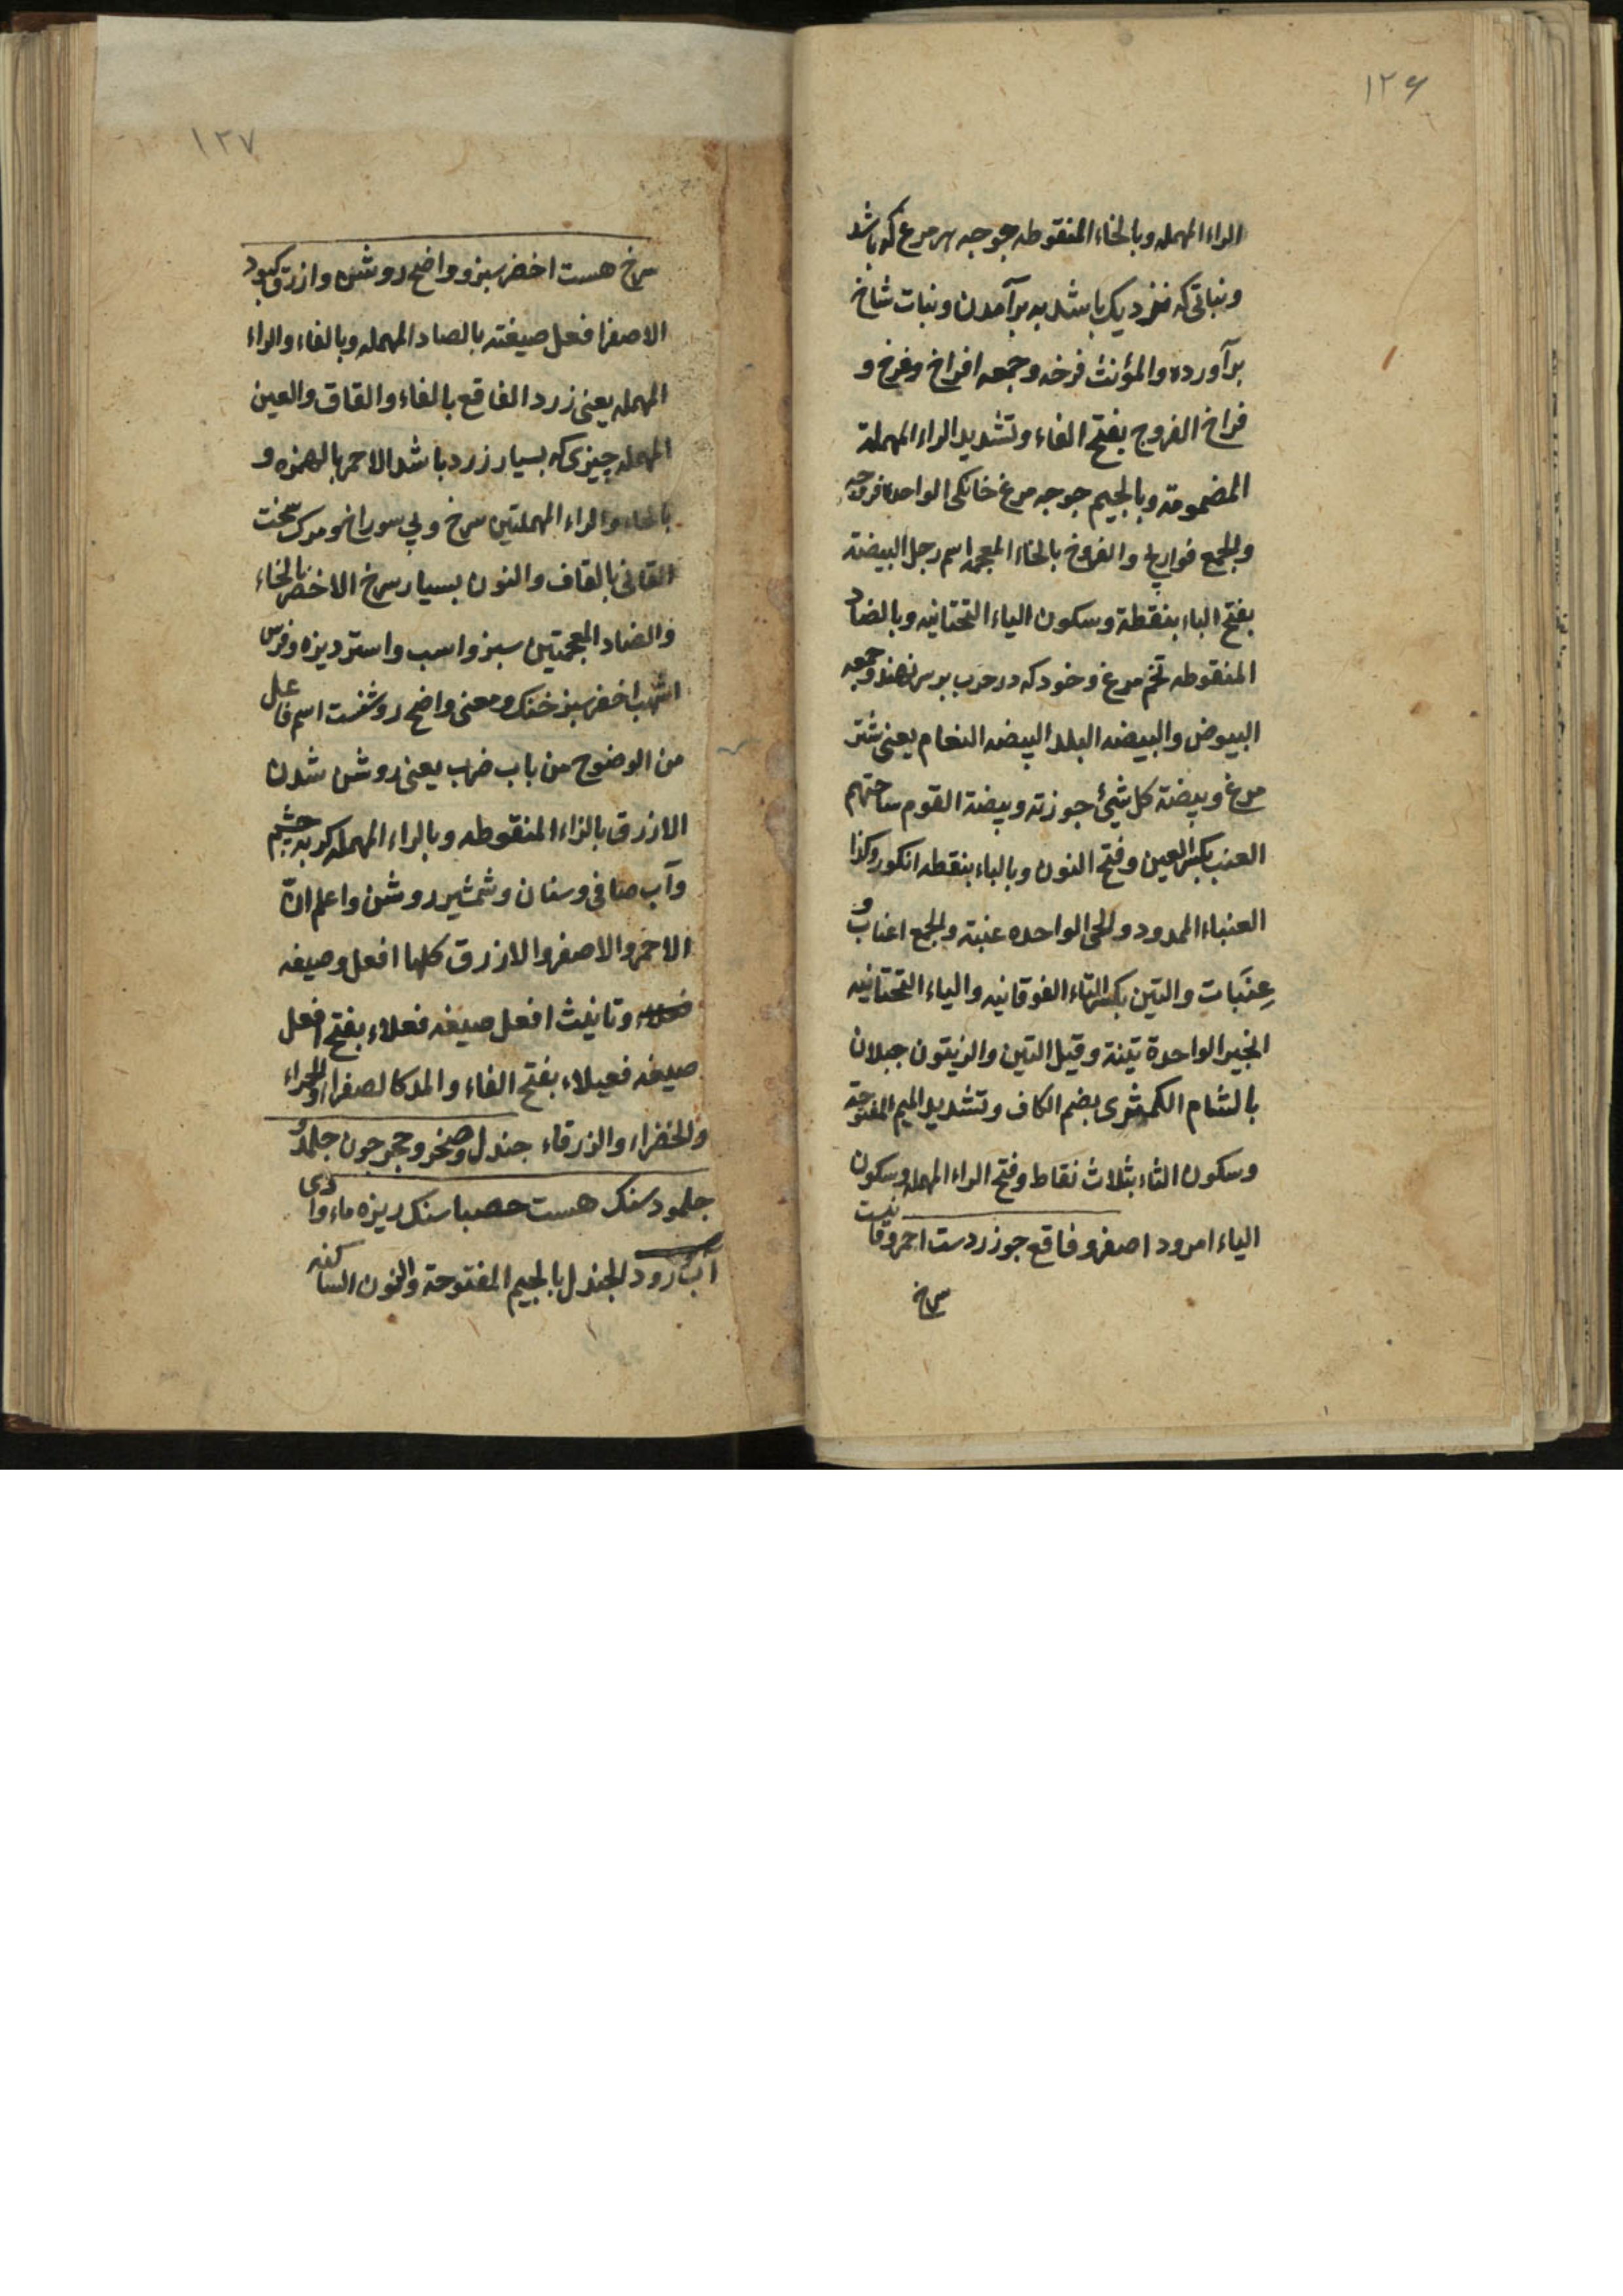 ۱۲۶
الراء المهمله وبالخاء المنقوطه جوجه هر مرغ که باشد
ونباتی که نزدیک باشد به برآمدن ونبات شاخ
برآورده والمؤنث فرخه وجمعه افراخ وفرخ و
فراخ الفروج بفتح الفاء وتشدید الراء المهملة
المضمومة وبالجیم جوجه مرغ خانکی الواحدة فروجه
والجمع فراریج والفروخ بالخاء المعجمه اسم رجل البیضة
بفتح الباء بنقطة وسکون الیاء التحتانیه وبالضاد
المنقوطه تخم مرغ وخود که در حرب بر سر نهند وجمعه
البیوض والبیضه البلد البیضه النعام یعنی شتر
مرغ وبیضة کل شئ جوزته وبیضة القوم ساحتهم
العنب بکسر العین وفتح النون وبالباء بنقطه انکور وکذا
العنباء الممدود والحی الواحده عنبة والجمع اعناب و
عِنَبات والتین بکسر التاء الفوقانیه والیاء التحتانیه
انجیر الواحدة تینة وقیل التین والزیتون جبلان
بالشام الکمثری بضم الکاف وتشدید المیم المفتوحة
وسکون الثاء بثلاث نقاط وفتح الراء المهمله وسکون
الیاء امرود اصفر وفاقع جو زردست احمر وقانیست
سرخ
۱۲۷
سرخ هست اخضر سبز وواضح روشن وازرق کبود
الاصفر افعل صیغته بالصاد المهمله وبالفاء والراء
المهمله یعنی زرد الفاقع بالفاء والقاف والعین
المهمله چیزی که بسیار زرد باشد الاحمر بالهمزه و
بالحاء والراء المهملتین سرخ وبی سوراخ ومرک سخت
القانی بالقاف والنون بسیار سرخ الاخضر بالخاء
والضاد المعجمتین سبز واسب واستر دیزه وفرس
اشهب اخضر سبز خنک ومعنی واضح روشنست اسم فاعل
من الوضوح من باب ضرب یعنی روشن شدن
الازرق بالزاء المنقوطه وبالراء المهمله کربه چشم
وآب صافی وسنان وشمشیر روشن واعلم انّ
الاحمر والاصفر والازرق کلها افعل وصیغه
وتانیث افعل صیغه فعلاء بفتح افعل
صیغه فعیلاء بفتح الفاء والمد کالصفراء والحمراء
والخضراء والزرقاء جندل وصخر وحجر چون جلمد و
جلمود سنک هست حصبا سنک ریزه ماء وادی
آب ورود الجندل بالجیم المفتوحة والنون الساکنه